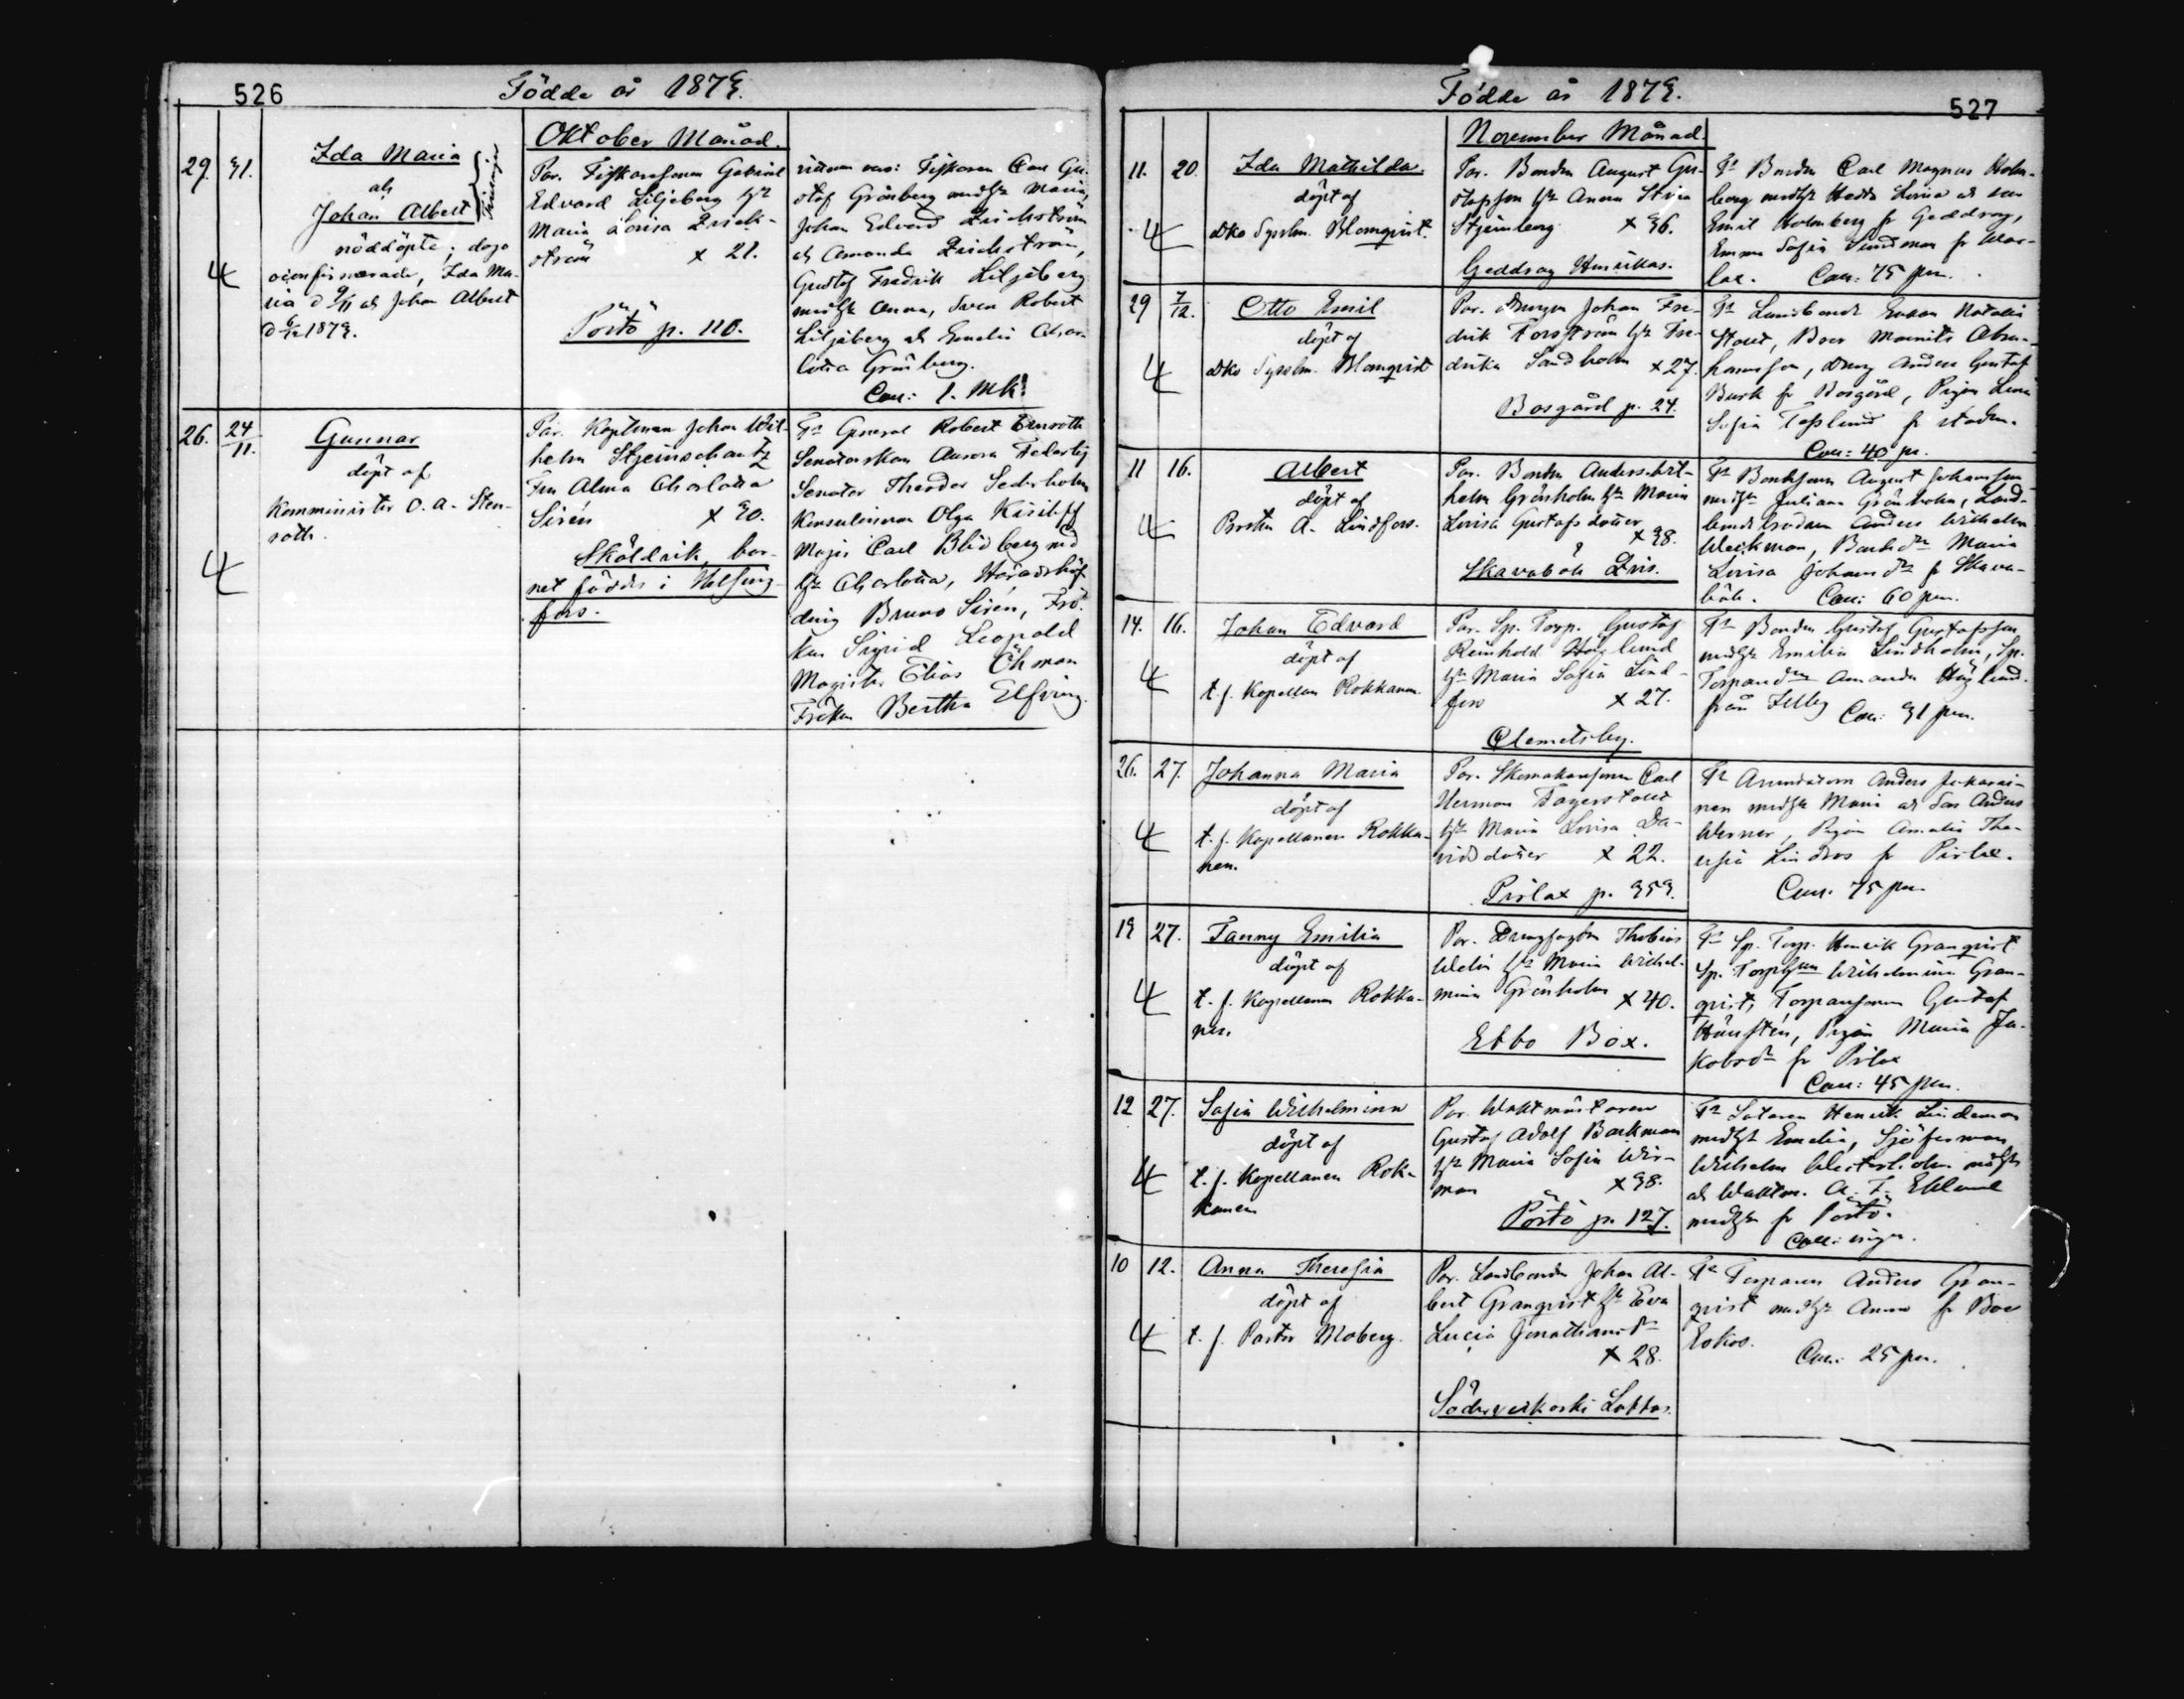 526
Födde år 1873.
Oktober Månad.
29. 31.
Ida Maria
och
Johan Albert
Tvillingar
nöddöpte; dops
ria d 9/11 och Johan Albert
1873.
4
Par. Fiskaresonen Gabriel
Edvard Liljeberg hu
Maria Lovisa Zrick-
ström x 21.
Pörtö p. 110.
Fiskaren Carl Gu-
staf Grönberg medhu Maria,
Johan Edvard Zrichström
och Amanda Zrichström,
Gustaf Fredrik Liljeberg
medhu Anna, Sven Robert
Liljeberg och Emelie Char-
lotta Grönberg.
Coll: 1. Mk.
26. 24/11.
Gunnar
döpt af
Komminister O. A. Sten-
roth.
4
Par. Kaptenen Johan Wil-
helm Stjernschantz
Fru Alma Charlotta
Sirén x 30.
Sköldvik, bar-
net föddes i Helsing-
fors.
Fr General Robert Enroth
Senatorskan Aurora
Senator Theodor Sederholm
Konsulinnan Olga Kisileff
Majis Carl Blidberg med
hu Charlotta, Häradshöf-
ding Bruno Sirén, Frö-
ken Sigrid Leopold
Magister Elias Öhman
Fröken Bertha Elfving.
Födde år 1873.
527
November Månad.
11. 20.
Ida Mathilda.
döpt af
Blomqvist.
4
Par. Bonden August Gu-
stafsson hu Anna Stina
Stjernberg x 36.
Geddrag Henrikas.
Fr Bonden Carl Magnus Holm-
berg medhu Hedda Lovisa och son
Emil Holmberg fr Geddrag,
Emma Sofia Sundman fr War-
lax. Coll: 75 pen.
29 7/12.
Otto Emil
döpt af
Blomqvist
4
Par. Drengen Johan Fre-
drik Forsström hu Fre-
drika Sandholm x 27.
Bosgård p. 24.
Fr Landbonde Natalia
Stolt, Boer Mauritz Abra-
hamsson, Dreng Anders Gustaf
Burk fr Bosgård, Pigan Lovisa
Sofia fr staden.
Coll: 40 pn.
11 16.
Albert
döpt af
A. Lindfors.
4
Par. Bonden Anders Wil-
helm Grönholm hu Maria
Lovisa Gustafsdotter
x 38.
Skavaböle Dris.
Fr Bondsonen August Johansson
medhu Juliana Grönholm, Land-
Anders Wilhelm
Weckman, Maria
Lovisa Johansdr fr Skava-
böle. Coll: 60 pen.
14. 16.
Johan Edvard
döpt af
t. f. Kapellan Rokkanen.
4
Par. Sp. Torp. Gustaf
Reinhold Höglund
hu Maria Sofia Lind-
fors x 27.
Clemetsby.
Fr Bonden Gustaf Gustafsson
medhu Emilia Lindholm, Sp.
Amanda Höglund.
från Illby Coll: 31 pen.
26. 27.
Johanna Maria
döpt af
t. f. Kapellanen Rokka-
nen.
4
Par. Skomakaresonen Carl
Herman Fagerstedt
hu Maria Lovisa Da-
vidsdotter x 22.
Pirlax p. 353.
Fr Arrendatorn Anders Jukarai-
nen medhu Maria och Son Anders
Werner, Pigan Amalia The-
resia Lindros fr Pirlax.
Coll: 75 pen
19 27.
Fanny Emilia
döpt af
t. f. Kapellanen Rokka-
nen.
4
Par. Drengfogden Thobias
Welin hu Maria Wilhel-
mina Grönholm x 40.
Ebbo Box.
Fr Sp. Torp. Henrik Granqvist
Sp. Wilhelmina Gran-
qvist, Gustaf
Pigan Maria Ja-
kobsdr fr Pirlax
Coll: 45 pen.
12 27.
Sofia Wilhelmina
döpt af
t. f. Kapellanen Rok-
kanen
4
Par. Waktmästaren
Gustaf Adolf Backman
hu Maria Sofia Wir-
man x 38.
Pörtö p. 127.
Fr Lotsen Henrik Lindeman
medhu Emelia, Sjöfarman
Wilhelm Westerholm medhu
och Waktm. A. F. Eklund
medhu fr Pörtö.
Coll: ingen.
10 12.
Anna Theresia
döpt af
t. f. Pastor Moberg.
4
Par. Landbonden Johan Al-
bert Granqvist hu Eva
Lucia Jonathansdr
x 28.
Söderveckoski Labbas.
Fr Torparen Anders Gran-
qvist medhu Anna fr Boe
Eskos.
Coll: 25 pen.